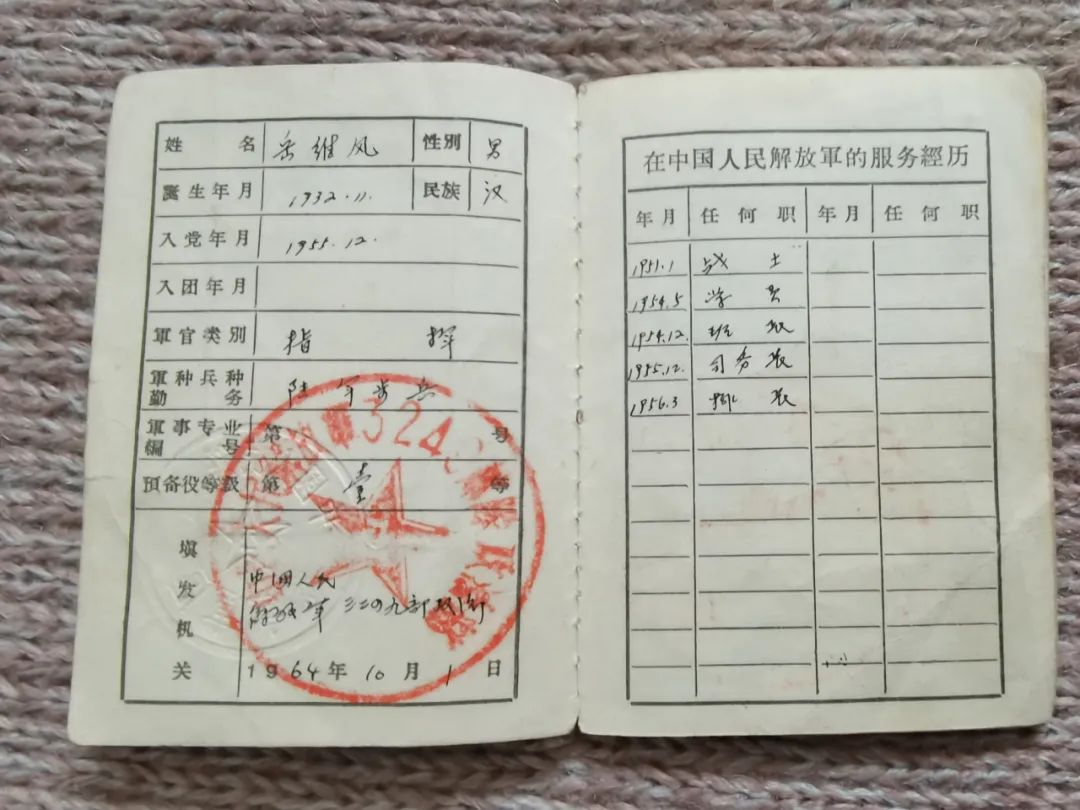 姓名 岳维凤 性別 男
誕生年月 1932.11. 民族 汉
入党年月 1955.12.
入团年月
軍官类別 指挥
軍种兵种勤务 陆军步兵
軍事专业編号 第 号
預备役等級 第壹等
填发机关
中国人民
解放军三二四九部政治
1964年10月1日
324
在中国人民解放軍的服务經历
年月 任何职 年月 任何职
1951.1 战士
1954.5 学员
1954.12. 班长
1955.12. 司务长
1956.3 排长